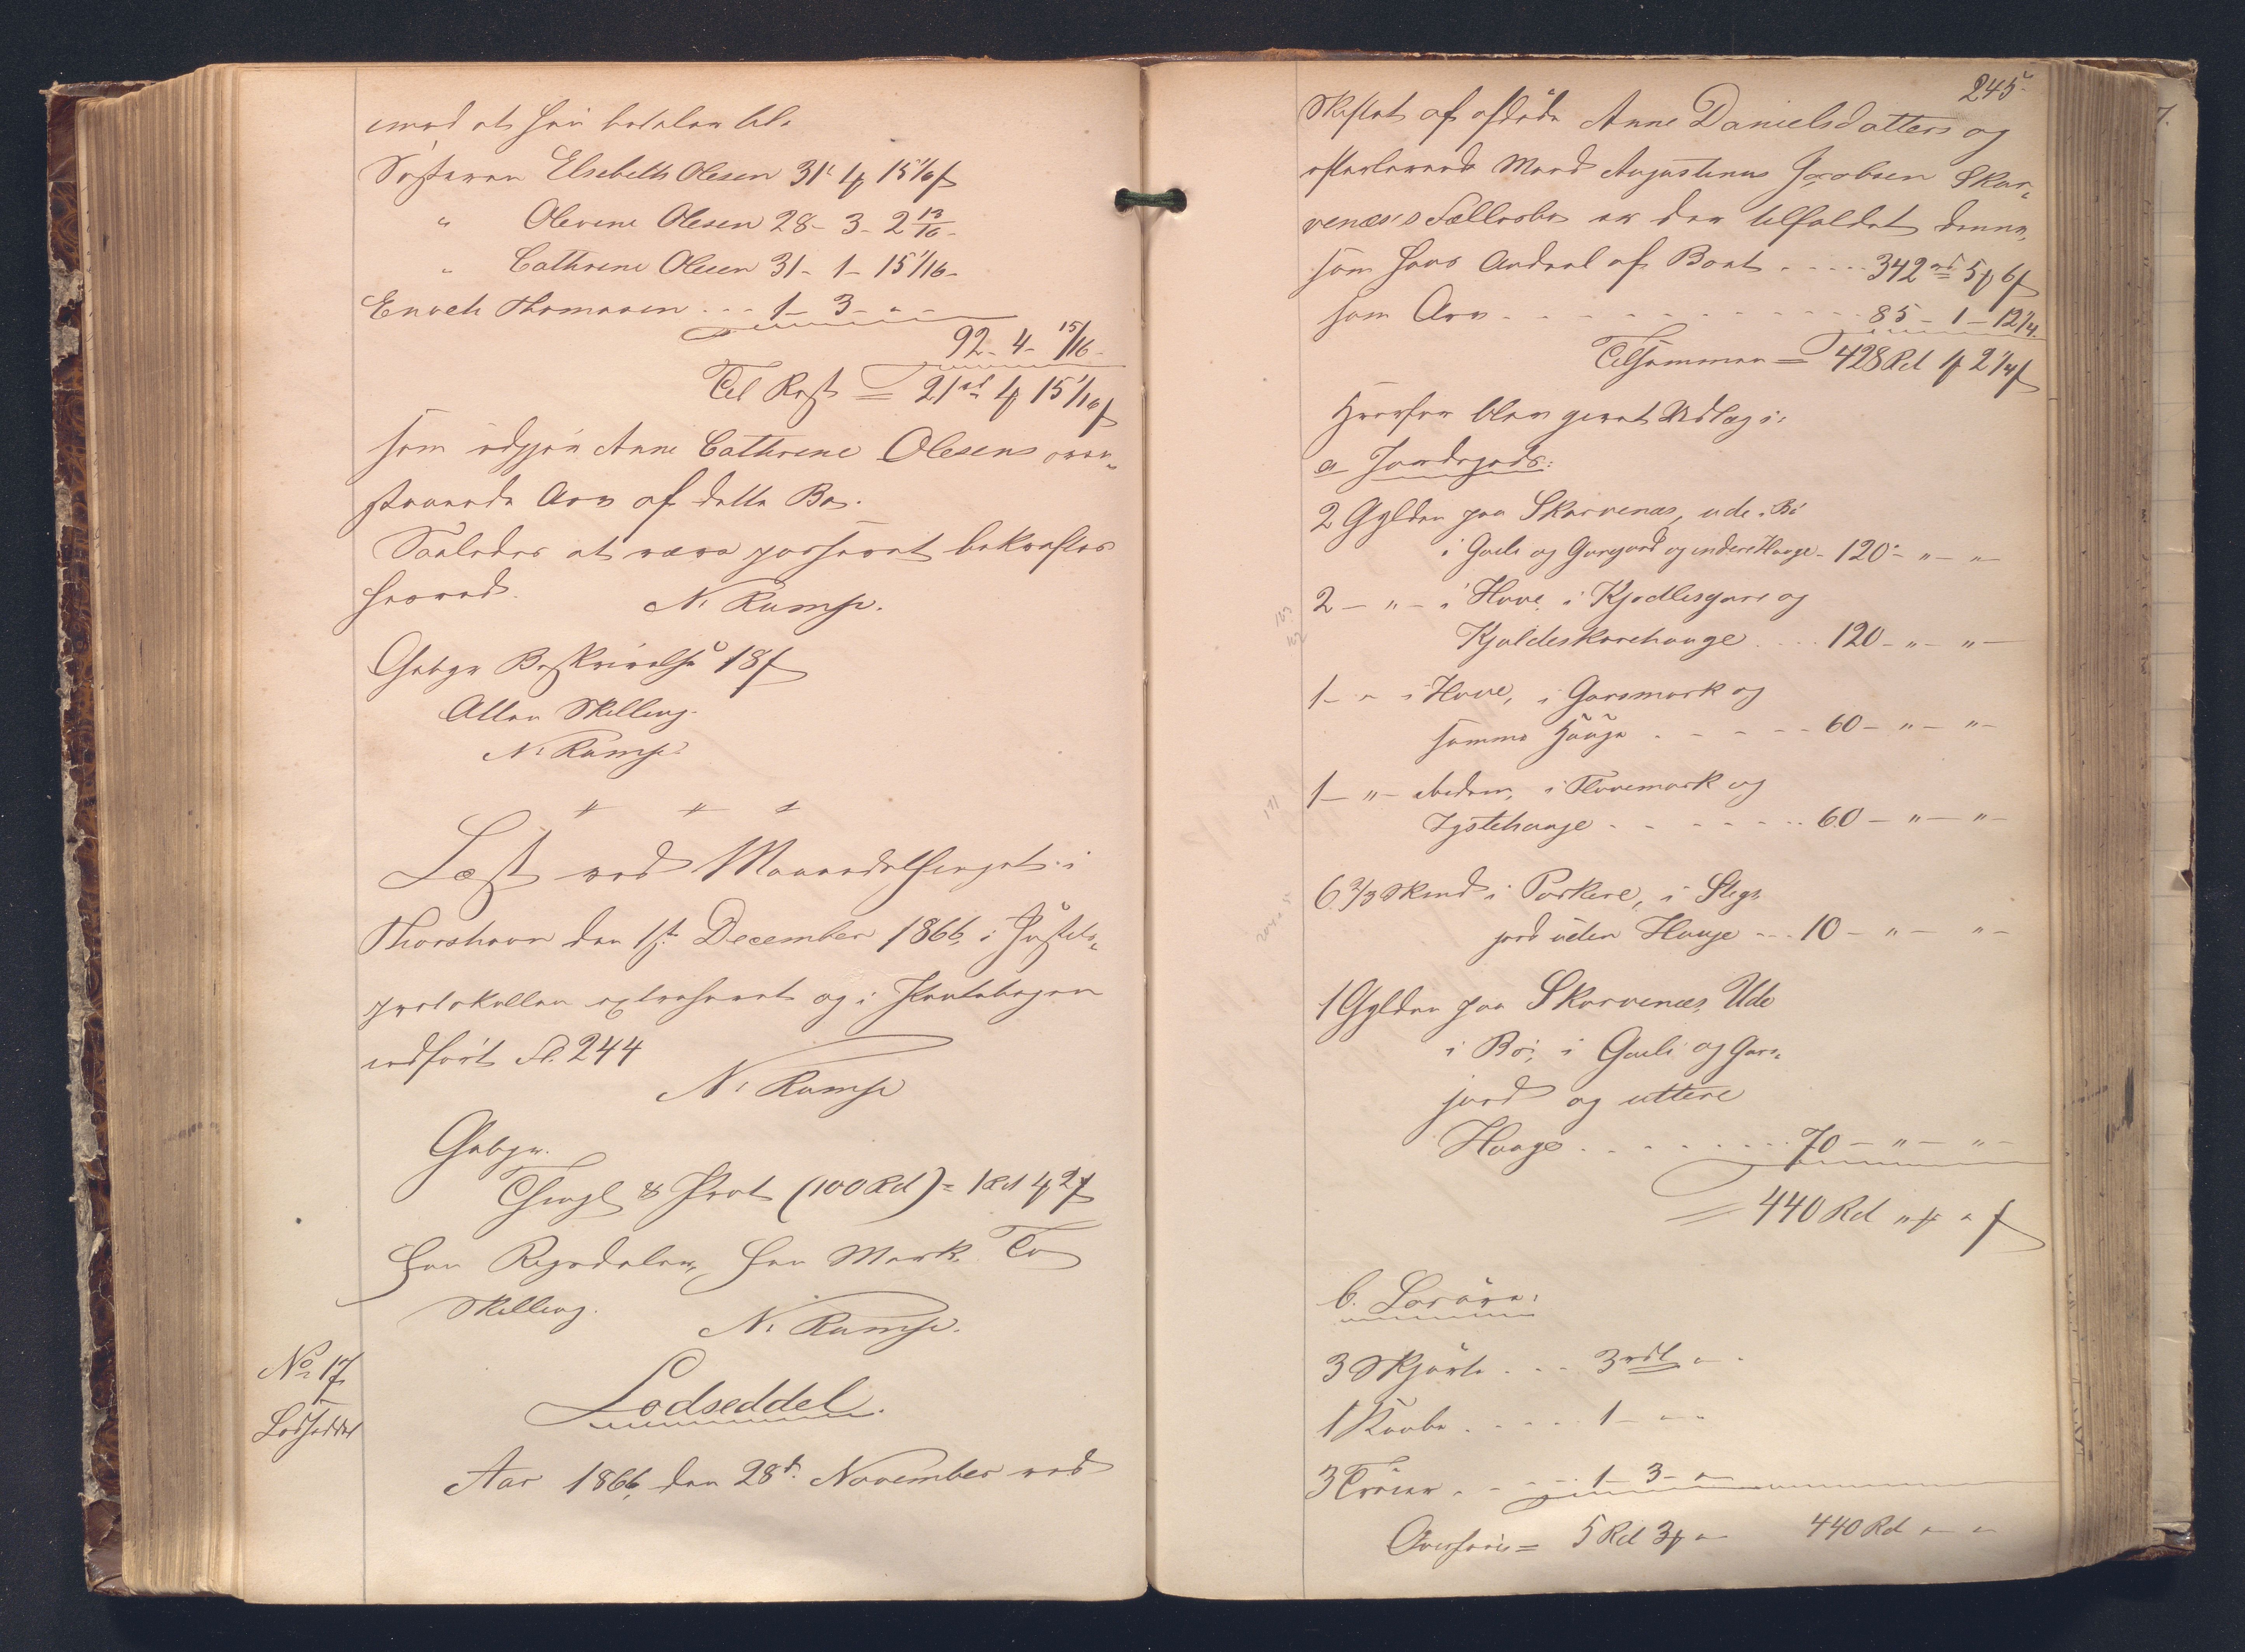 imod at hun betaler til:
Søsteren Elsebeth Olesen 31 rd 1 ₻ 15 1/16 ß
" Olevine Olesen 28 - 3 - 2 13/16 -
" Cathrine Olesen 31 - 1 - 15 1/16 -
Enoch Thomasen . . . 1 - 3 - " -
92 - 4 - 15/16 -
Til Rest = 21 rd 1 ₻ 15 1/16 ß
som udgjør Anne Cathrine Olesens oven-
staaende Arv af dette Bo.
Saaledes at være passeret bekræftes
herved.
N. Rump.
Gebyr Beskrivelse 18 ß
Atten Skilling.
N. Rump.
" " "
Læst ved Maanedsthinget i
Thorshavn den 1st December 1866, i Justits-
protokollen extraheret og i Pantebogen
indført Fol. 244
N. Rump
Gebyr.
Thingl & Prot (100 Rd) = 1 Rd 1 ₻ 2 ß
Een Rigsdaler, Een Mark, To
Skilling.
N. Rump.
No 17
Lodseddel
Lodseddel.
Aar 1866, den 28d November ved
245
Skiftet af afdøde Anne Danielsdatters og
efterlevende Mand Augustinus Jacobsen Skar-
venæs's Fællesbo er der tilfaldet denne,
som hans Andeel af Boet . . . . 342 rd 5 ₻ 6 ß
som Arv . . . . . . . . . 85 - 1 - 12 1/4
Tilsammen = 428 Rd 1 ₻ 2 1/4 ß
Hvorfor blev gjort Udlæg i:
a Jordegods:
2 Gylden paa Skarvenæs, ude i Bø
i Gaeli og Garsjord og indere Hauge - 120 - " - "
2 - " - i Hove, i Kjodlesgare og
Kjaldeskarehauge . . . . 120 - " - " -
1 - " - i Hove, i Garsmark og
samme Hauge . . . . . 60 - " - " -
1 - " - ibidem, i Flovemark og
Tystehauge . . . . . . 60 - " - " -
6 2/3 Skind i Porkere, i Steg-
jord uden Hauge . . . 10 - " - " -
1 Gylden paa Skarvenæs, Ude
i Bø, i Gaeli og Gars-
jord og uttere
Hauge . . . . . . . 70 - " - " -
= 440 Rd " ₻ " ß
b. Løsøre:
3 Skjorte . . . 3 rdl " -
1 Kaabe . . . . 1 - " -
3 Trøier . . . 1 - 3 - " -
Overføres = 5 Rd 3 ₻ " 440 Rd " "